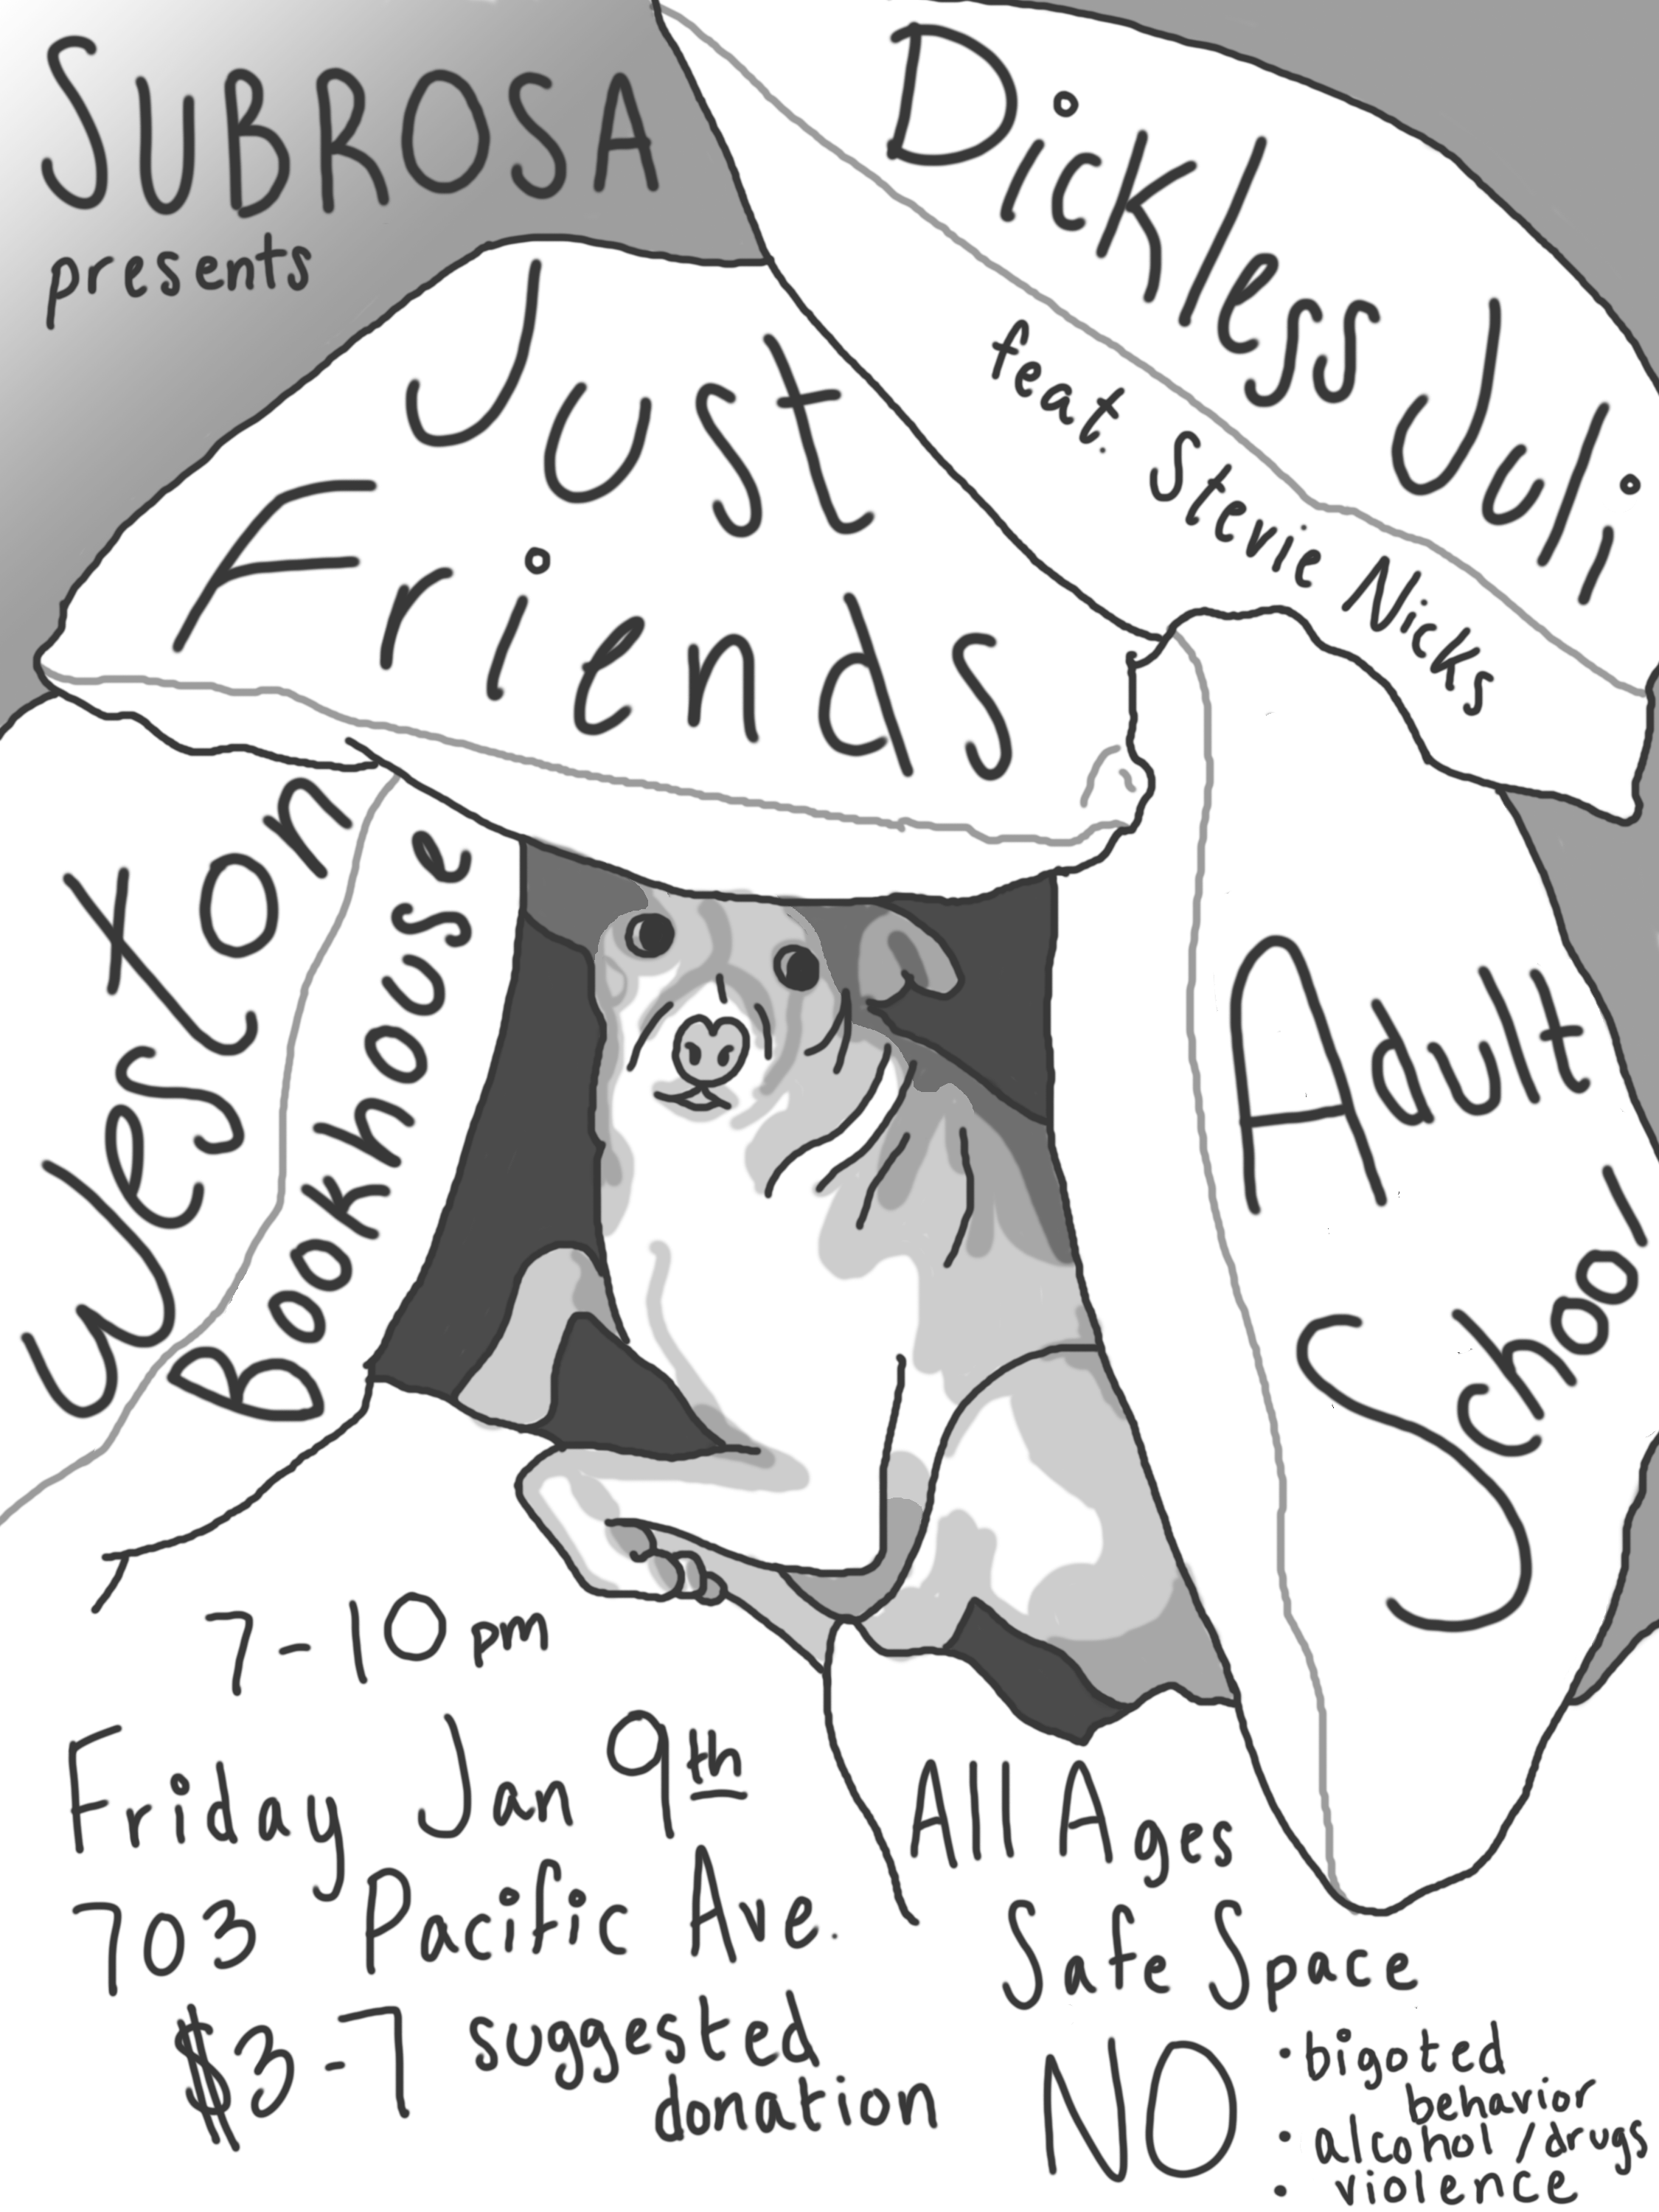 SUBROSA
presents
Dickless Juli
feat. Stevie Nicks
Just
Friends
Weston
Bookhouse
Adult
School
7-10pm
Friday Jan 9th
703 Pacific Ave.
$3-7 suggested
donation
All Ages
Safe Space
NO
• bigoted
behavior
• alcohol/drugs
• violence